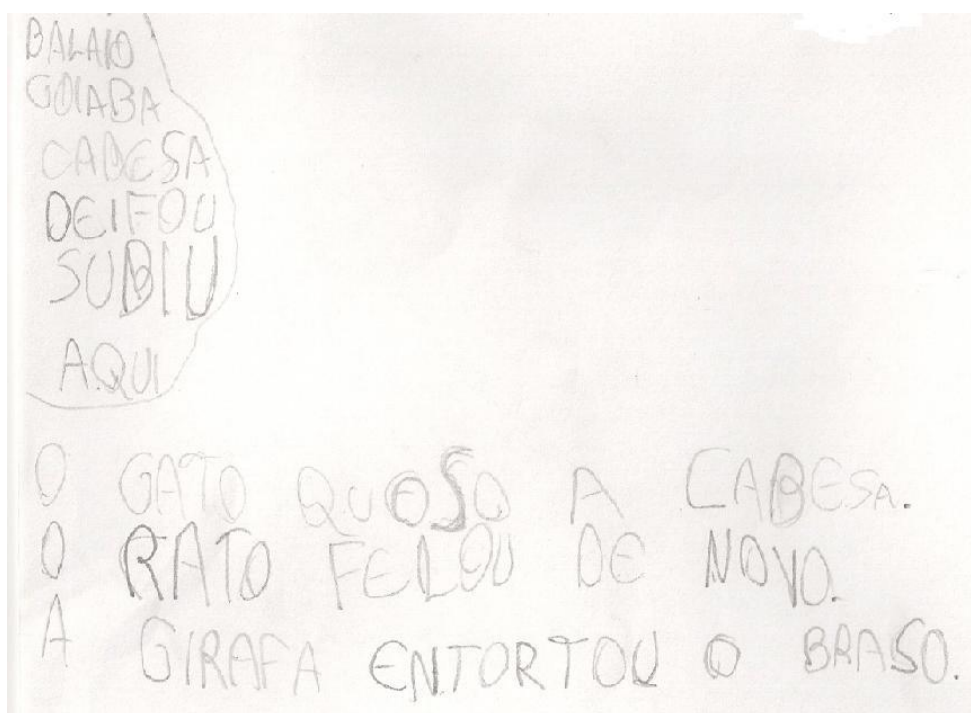 BALAIO
GOIABA
CABESA
DEIFOU
SUBIU
AQUI
O GATO QUOSO A CABESA.
O RATO FELOU DE NOVO.
A GIRAFA ENTORTOU O BRASO.